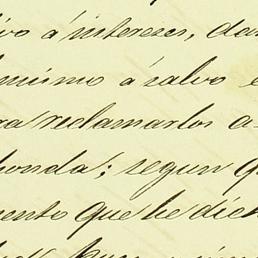 ivo á intereses, da
mismo á salvo e
ra reclamarlos a
ponda; segun q
mento que he dict